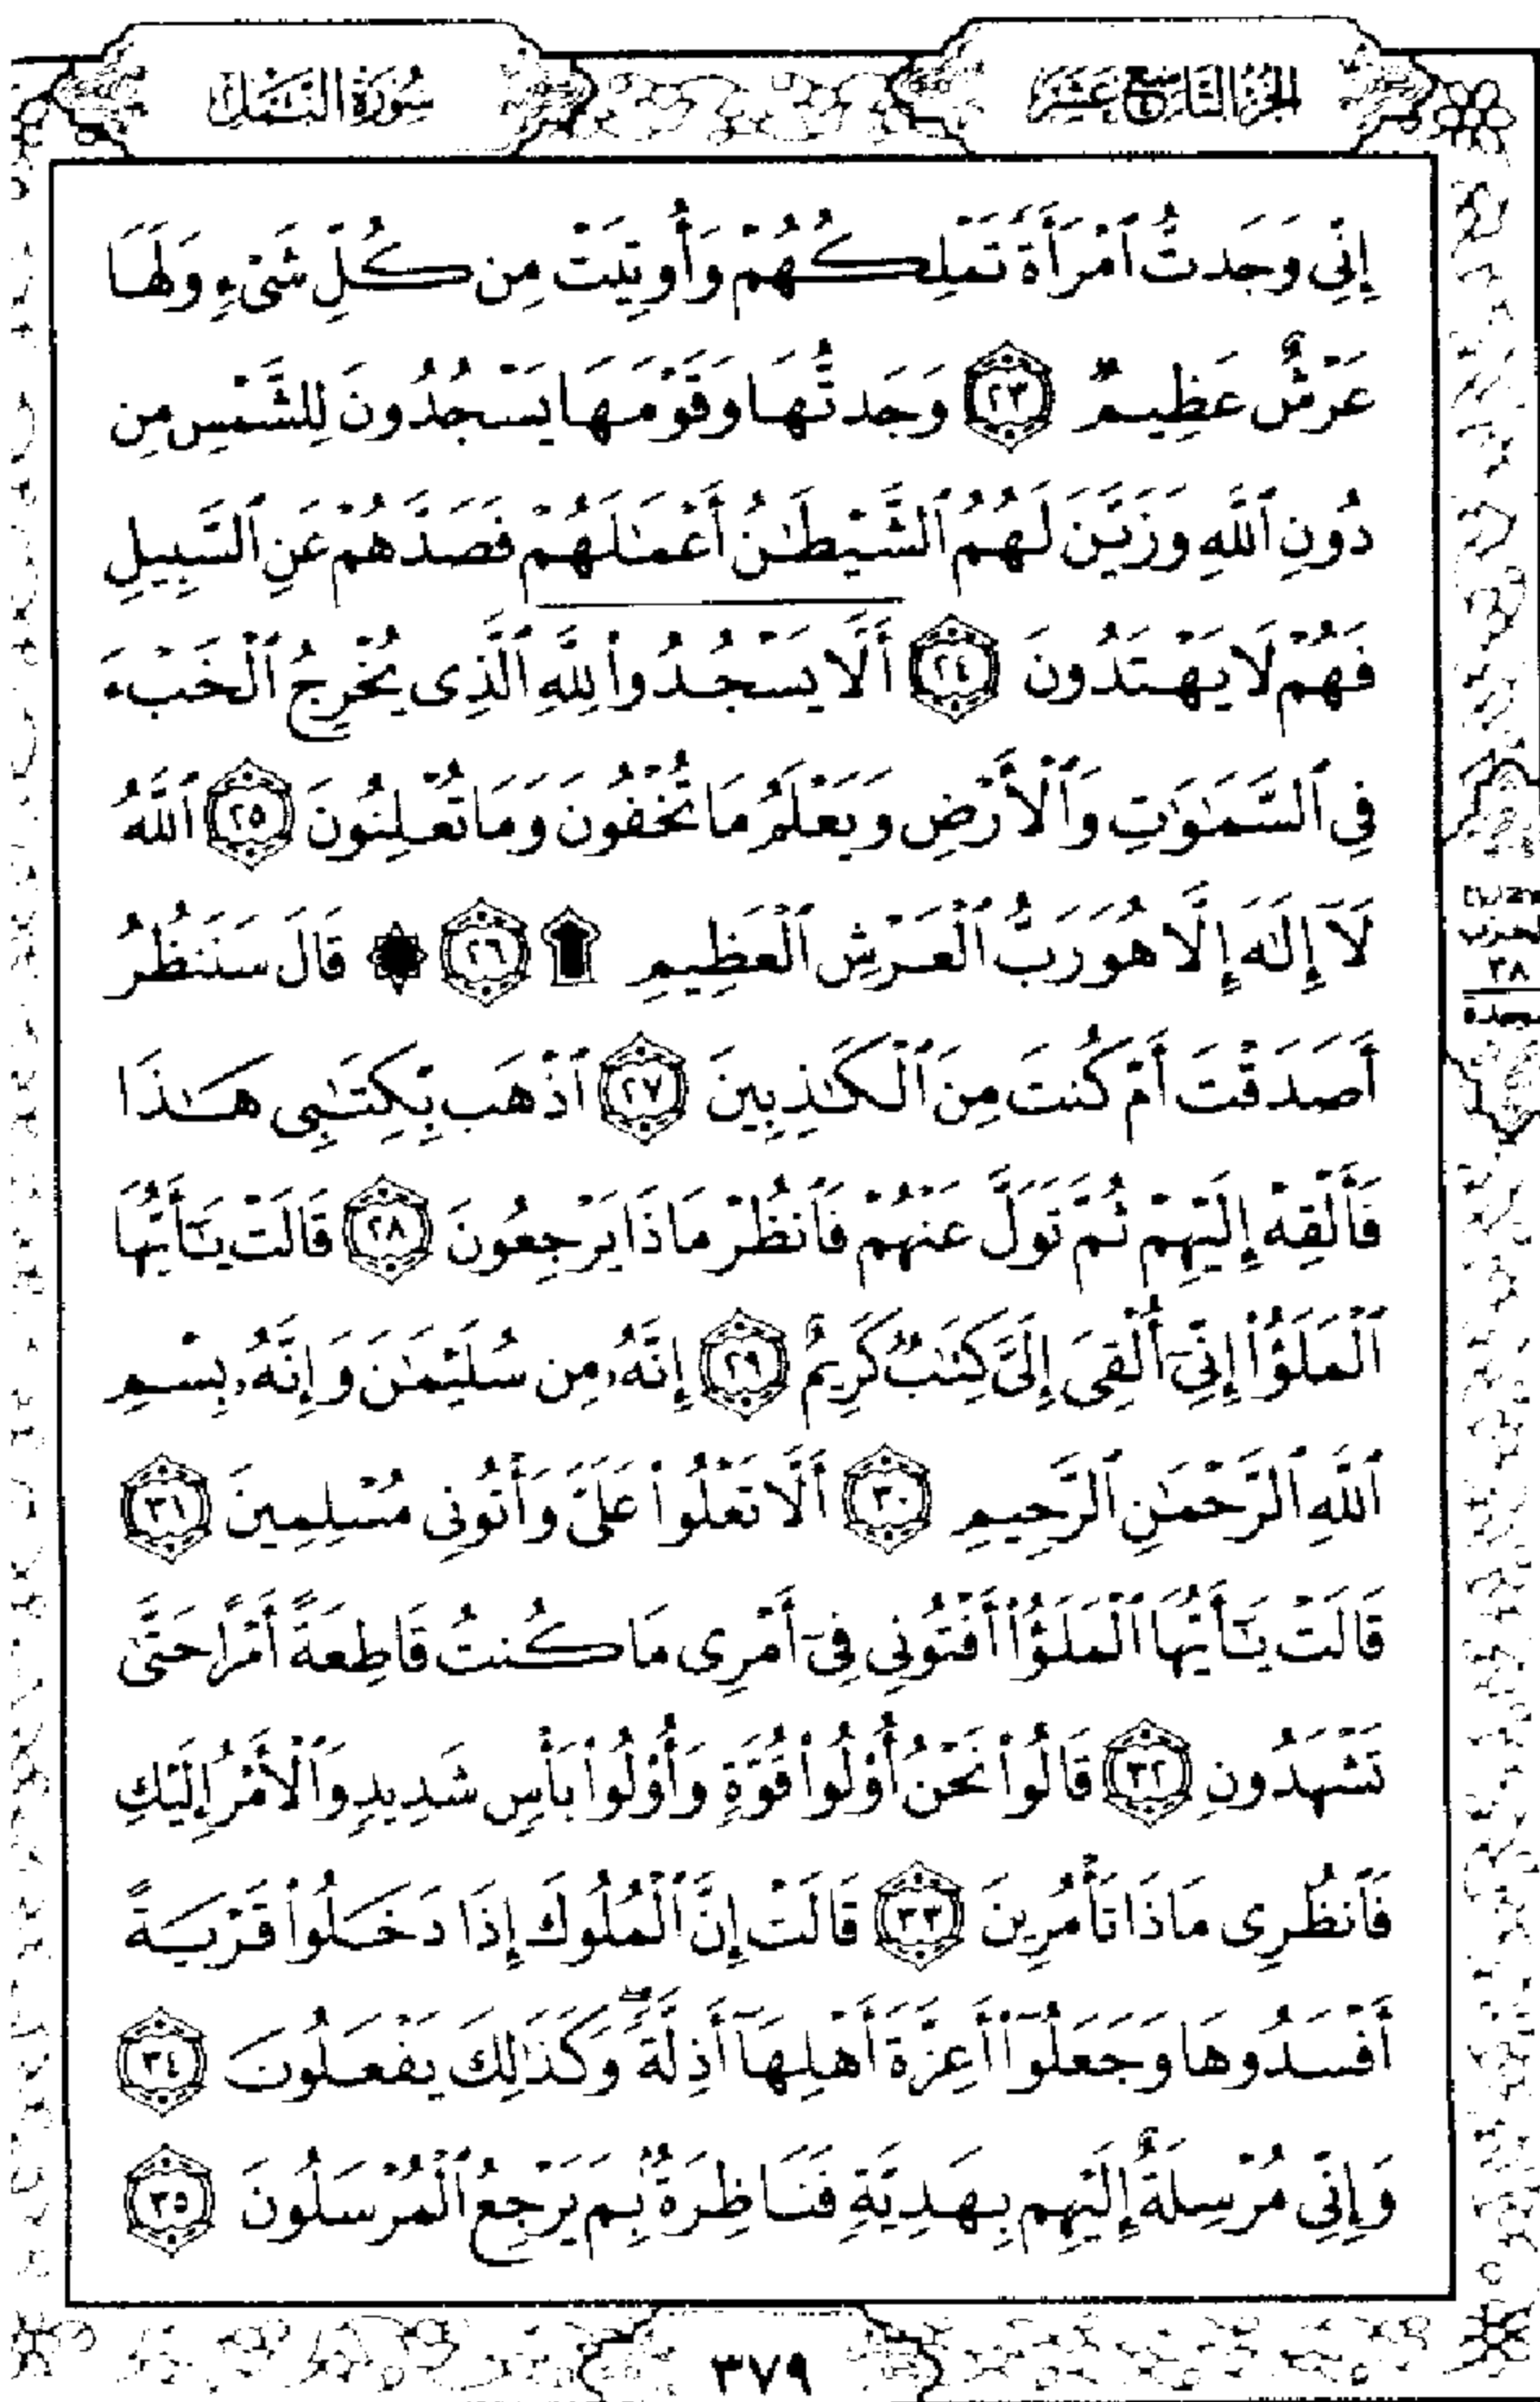 الجزء التاسع عشر
سورة النمل
إِنِّي وَجَدتُّ ٱمْرَأَةً تَمْلِكُهُمْ وَأُوتِيَتْ مِن كُلِّ شَىْءٍ وَلَهَا
عَرْشٌ عَظِيمٌ ٢٣ وَجَدتُّهَا وَقَوْمَهَا يَسْجُدُونَ لِلشَّمْسِ مِن
دُونِ ٱللَّهِ وَزَيَّنَ لَهُمُ ٱلشَّيْطَٰنُ أَعْمَٰلَهُمْ فَصَدَّهُمْ عَنِ ٱلسَّبِيلِ
فَهُمْ لَا يَهْتَدُونَ ٢٤ أَلَّا يَسْجُدُوا۟ لِلَّهِ ٱلَّذِى يُخْرِجُ ٱلْخَبْءَ
فِي ٱلسَّمَٰوَٰتِ وَٱلْأَرْضِ وَيَعْلَمُ مَا تُخْفُونَ وَمَا تُعْلِنُونَ ٢٥ ٱللَّهُ
لَآ إِلَٰهَ إِلَّا هُوَ رَبُّ ٱلْعَرْشِ ٱلْعَظِيمِ ۩ ٢٦ ۞ قَالَ سَنَنظُرُ
أَصَدَقْتَ أَمْ كُنتَ مِنَ ٱلْكَٰذِبِينَ ٢٧ ٱذْهَب بِّكِتَٰبِى هَٰذَا
فَأَلْقِهْ إِلَيْهِمْ ثُمَّ تَوَلَّ عَنْهُمْ فَٱنظُرْ مَاذَا يَرْجِعُونَ ٢٨ قَالَتْ يَٰٓأَيُّهَا
ٱلْمَلَؤُا۟ إِنِّىٓ أُلْقِىَ إِلَىَّ كِتَٰبٌ كَرِيمٌ ٢٩ إِنَّهُۥ مِن سُلَيْمَٰنَ وَإِنَّهُۥ بِسْمِ
ٱللَّهِ ٱلرَّحْمَٰنِ ٱلرَّحِيمِ ٣٠ أَلَّا تَعْلُوا۟ عَلَىَّ وَأْتُونِى مُسْلِمِينَ ٣١
قَالَتْ يَٰٓأَيُّهَا ٱلْمَلَؤُا۟ أَفْتُونِى فِىٓ أَمْرِى مَا كُنتُ قَاطِعَةً أَمْرًا حَتَّىٰ
تَشْهَدُونِ ٣٢ قَالُوا۟ نَحْنُ أُو۟لُوا۟ قُوَّةٍ وَأُو۟لُوا۟ بَأْسٍ شَدِيدٍ وَٱلْأَمْرُ إِلَيْكِ
فَٱنظُرِى مَاذَا تَأْمُرِينَ ٣٣ قَالَتْ إِنَّ ٱلْمُلُوكَ إِذَا دَخَلُوا۟ قَرْيَةً
أَفْسَدُوهَا وَجَعَلُوٓا۟ أَعِزَّةَ أَهْلِهَآ أَذِلَّةً ۖ وَكَذَٰلِكَ يَفْعَلُونَ ٣٤
وَإِنِّى مُرْسِلَةٌ إِلَيْهِم بِهَدِيَّةٍ فَنَاظِرَةٌۢ بِمَ يَرْجِعُ ٱلْمُرْسَلُونَ ٣٥
الحزب
٣٨
سجدة
٣٧٩